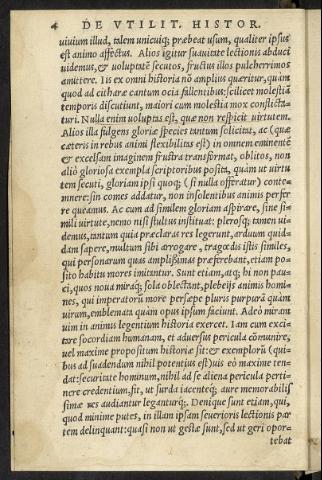 4 DE VTILIT. HISTOR.
uiuium illud, talem unicuiq; præbeat usum, qualiter ipsus
est animo affectus. Alios igitur suauitate lectionis abduci
uidemus, & uoluptatẽ secutos, fructus illos pulcherrimos
amittere. Iis ex omni historia nõ amplius quæritur, quàm
quod ad citharæ cantum ocia fallentibus: scilicet molestiã
temporis discutiunt, maiori cum molestia mox conflicta-
turi. Nulla enim uoluptas est, quæ non respicit uirtutem.
Alios illa fulgens gloriæ species tantum solicitat, ac (quæ
cæteris in rebus animi flexibilitas est) in omnem eminentẽ
& excelsam imaginem frustra transformat, oblitos, non
aliò gloriosa exempla scriptoribus posita, quàm ut uirtu
tem secuti, gloriam ipsi quoq; (si nulla offeratur) conte-
mnere: sin comes addatur, non insolentibus animis perfer
re queamus. Ac cum ad similem gloriam aspirare, sine si-
mili uirtute, nemo nisi stultus instituat: plerosq; tamen ui-
demus, tantum quia præclaras res legerunt, arduum quid-
dam sapere, multum sibi arrogare, tragœdis istis similes,
qui personarum quas amplißimas præferebant, etiam po-
sito habitu mores imitantur. Sunt etiam, atq; hi non pau-
ci, quos noua miraq; sola oblectant, plebeijs animis homi-
nes, qui imperatorũ more persæpe pluris purpurã quàm
uirum, emblemata quàm opus ipsum faciunt. Adeò miram
uim in animis legentium historia exercet. Iam cum exci-
tare socordiam humanam, et aduersus pericula cõmunire,
uel maxime propositum historiæ sit: & exemplorũ (qui-
bus ad suadendum nihil potentius est) uis eò maxime ten-
dat: securitate hominum, nihil ad se aliena pericula perti-
nere credentium, fit, ut surda iacentéq; aure memorabilis
simæ res audiantur leganturq;. Denique sunt etiam, qui,
quod minime putes, in illam ipsam seuerioris lectionis par
tem delinquant: quasi non ut gestæ sunt, sed ut geri opor-
tebat